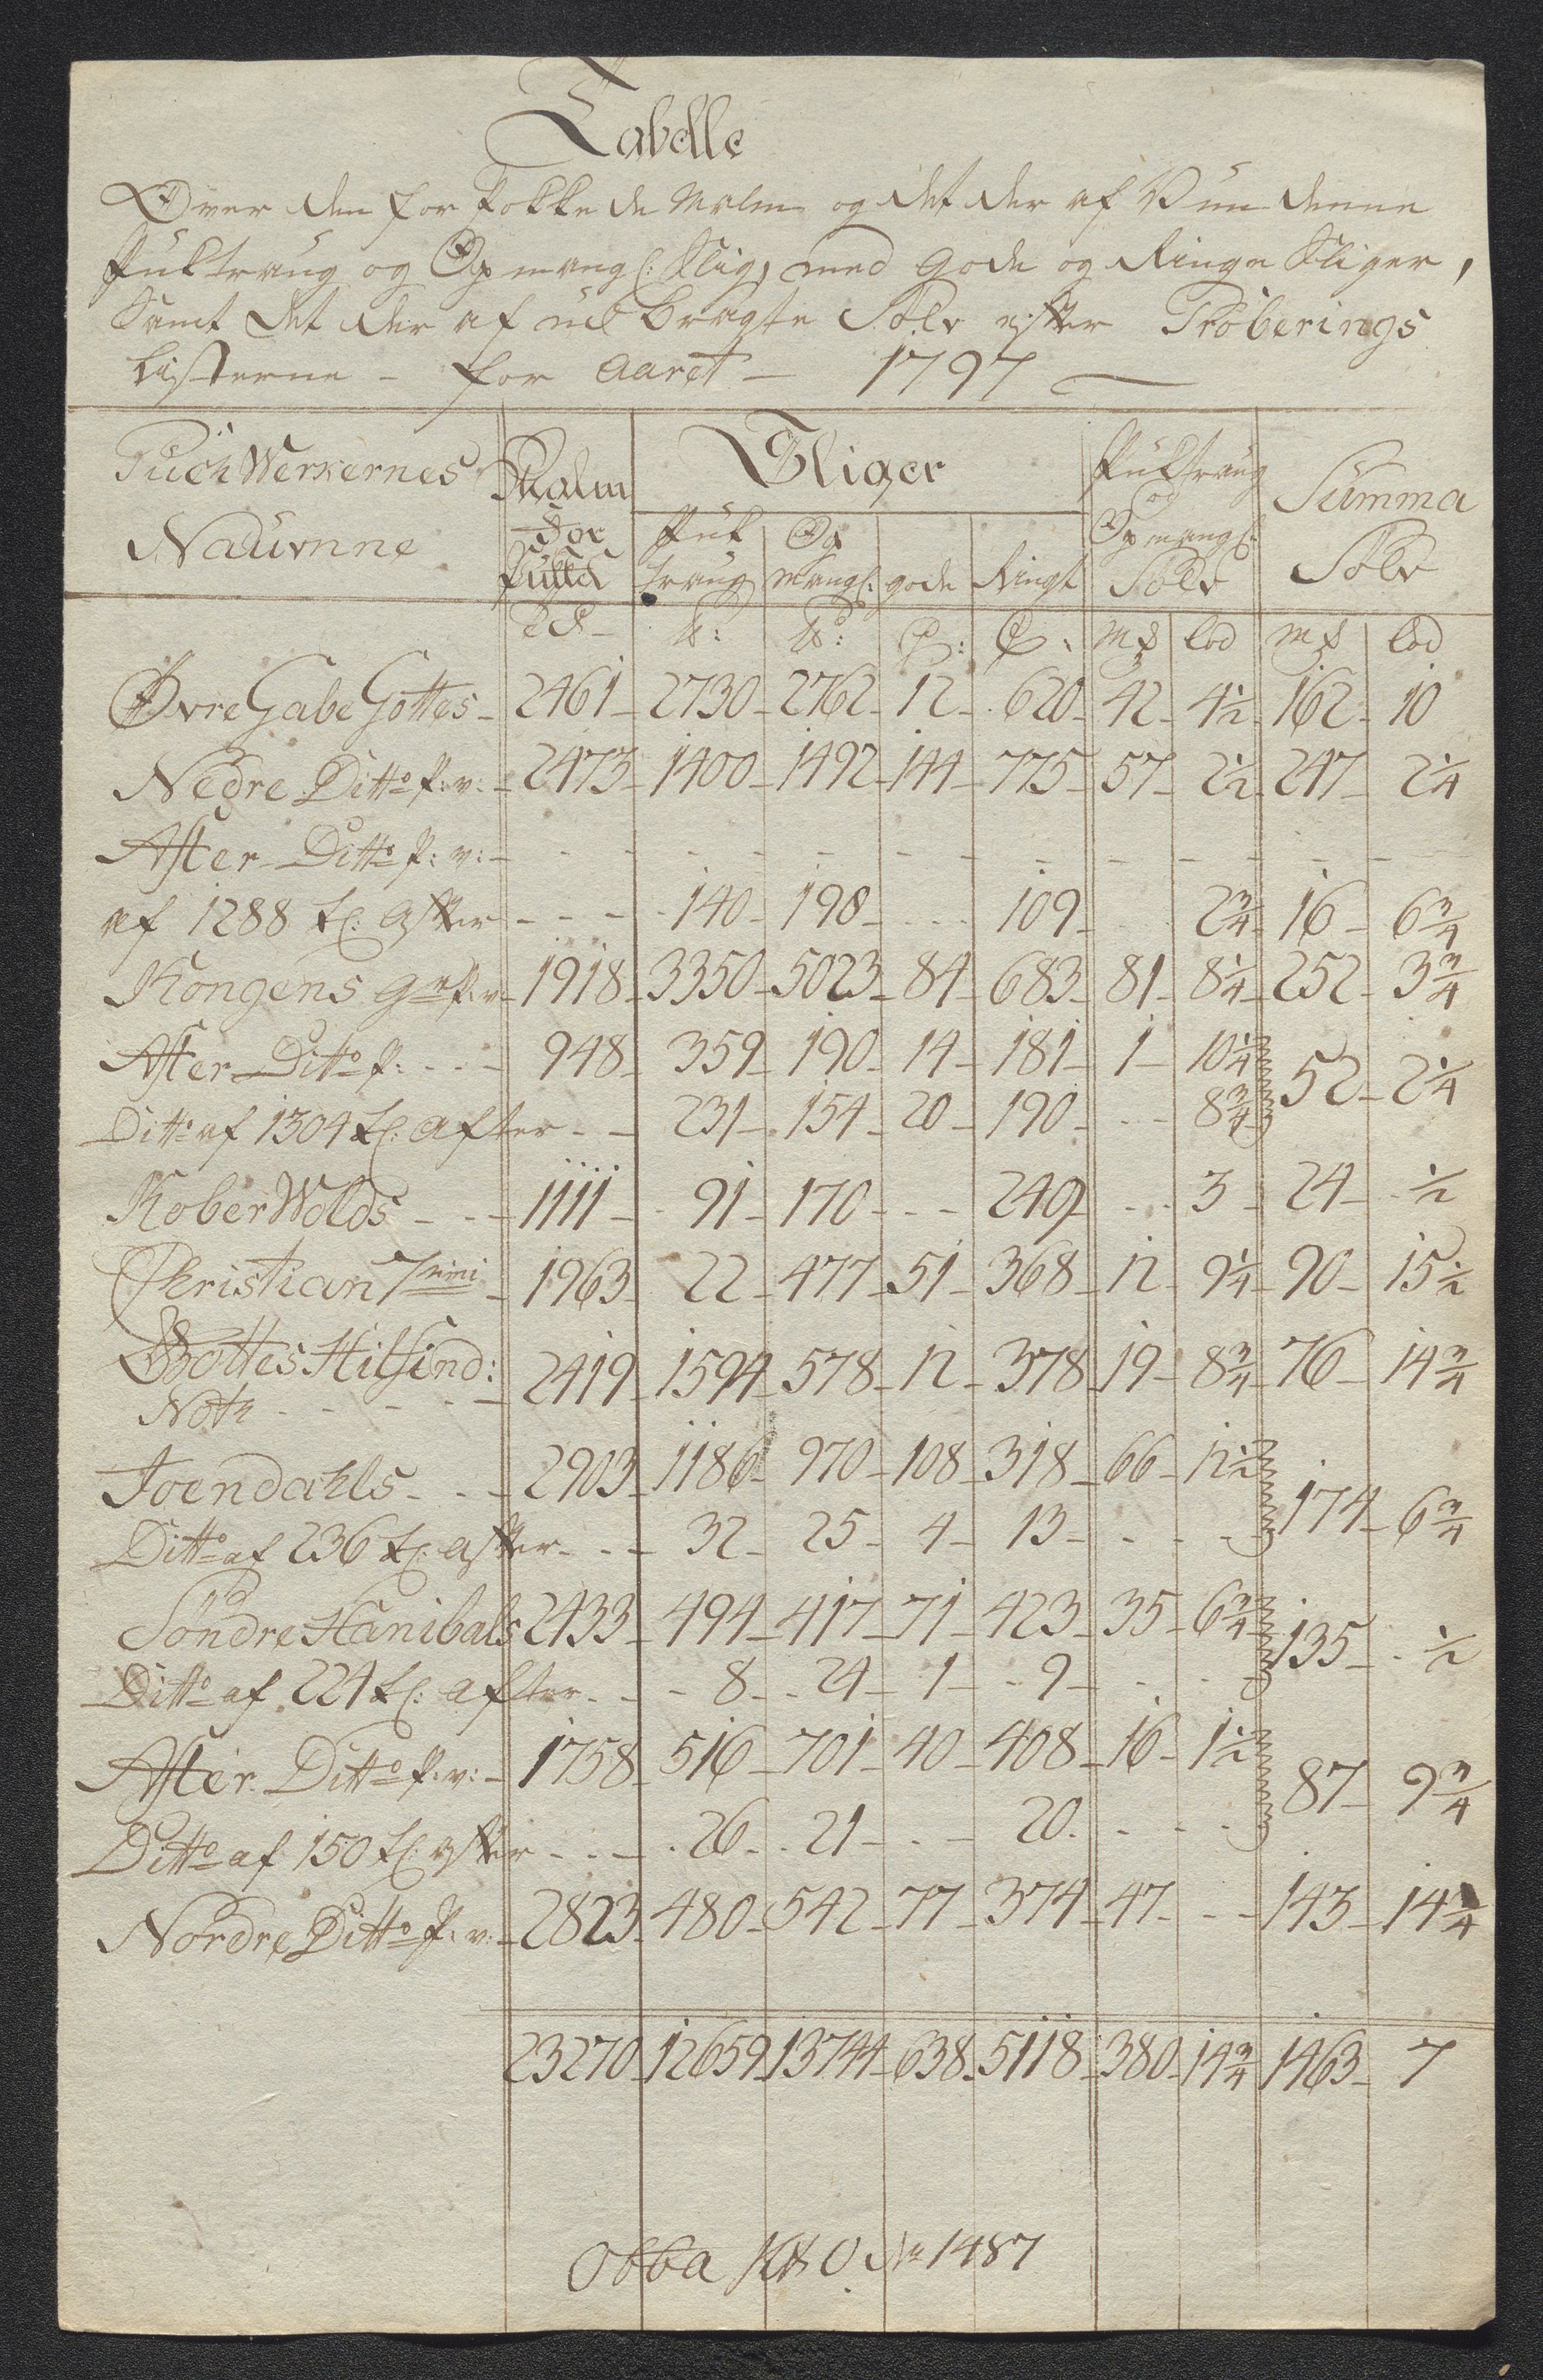 Tabelle
Over den for Pokkede Malm og det der af Vundenne
Puktraug og Opmangl: Slig, med gode og Ringe Sliger,
Samt det der af ud bragte Sölv efter Pröberings
Listerne - for Aaret - 1797
Puch Werkernes Malm Sliger Puktraug Summa
Naufnne For Puk Op og Opmangl: Sölv
Pukked traug mangl: gode Ringe Sölv
mk lod mk lod
Øvre Gabe Gottes - 2461 - 2730 - 2762 - 12 - 620 - 42 - 4½ - 162 - 10
Nedre Ditto P: v: - 2473 - 1400 - 1492 - 144 - 775 - 57 - 2½ - 247 - 2¼
After Ditto P: v: - - - - - - - - - - - -
af 1288 tl: After - - - 140 - 198 - - - 109 - - - 2¾ - 16 - 6¾
Kongens Gr P: v - 1918 - 3350 - 5023 - 84 - 683 - 81 - 8¼ - 252 - 3¾
After Ditto P: - - - 948 - 359 - 190 - 14 - 181 - 1 - 10¼ 52 - 2¼
Ditto af 1304 tl: After - - 231 - 154 - 20 - 190 - - - 8¾
Kober Wolds - - - 1111 - 91 - 170 - - - 249 - - - 3 - 24 - ½
Christian 7mi - 1963 - 22 - 477 - 51 - 368 - 12 - 9¼ - 90 - 15½
Gottes Hilf in d:
Noth - - - - - 2419 - 1594 - 578 - 12 - 378 - 19 - 8¾ - 76 - 14¾
Joendahls - - - 2903 - 1186 - 970 - 108 - 318 - 66 - 12½ 174 - 6¾
Ditto af 236 tl: After - - - 32 - 25 - 4 - 13 - - - -
Söndre Hanibals 2433 - 494 - 417 - 71 - 423 - 35 - 6¾ 135 - ½
Ditto af 224 tl: After - - - 8 - 24 - 1 - 9 - - - -
After Ditto P: v: - 1758 - 516 - 701 - 40 - 408 - 16 - 1½ 87 - 9¾
Ditto af 150 tl: After - - - 26 - 21 - - - 20 - - - -
Nordre Ditto P: v: - 2823 - 480 - 542 - 77 - 374 - 47 - - - 143 - 14¾
23270 - 12659 - 13744 - 638 - 5118 - 380 - 14¾ 1463 - 7
Obba No 1487